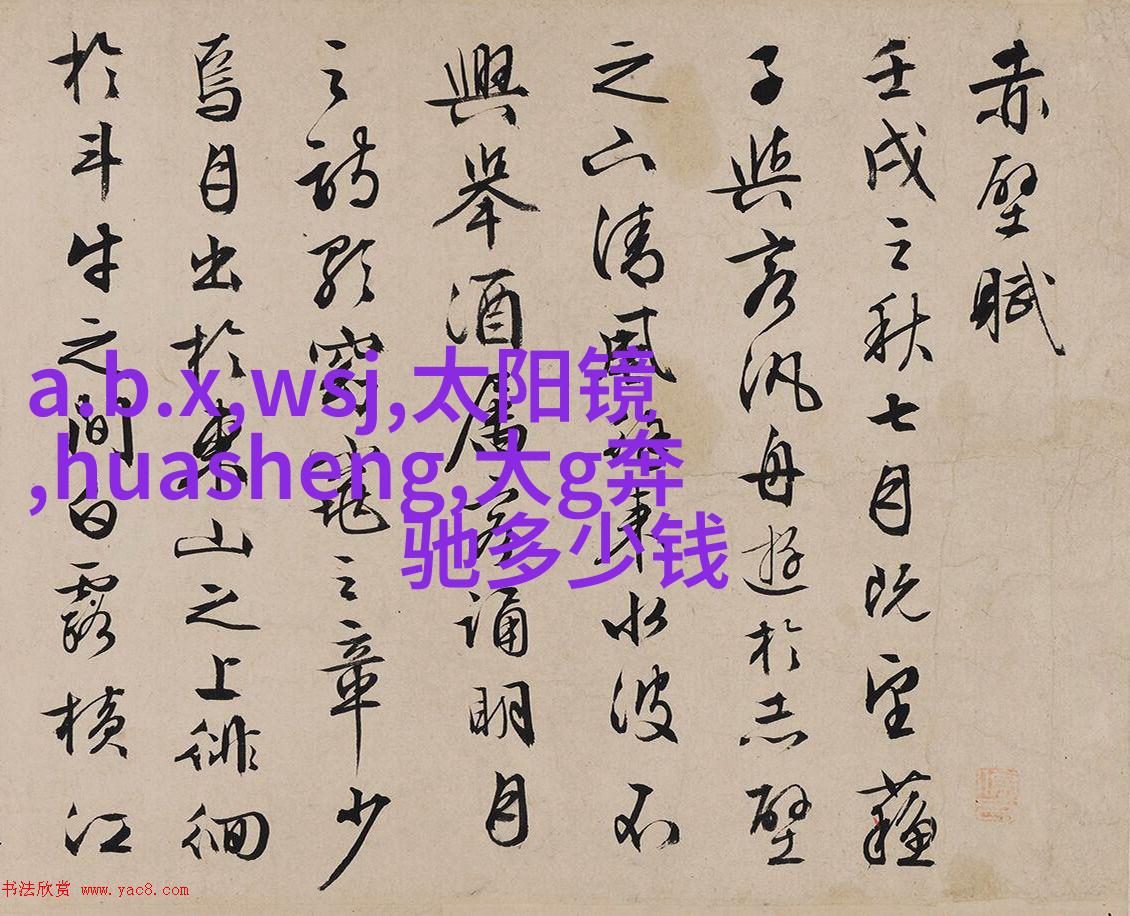 赤壁賦
壬戌之秋七月既望蘇
子與客汎舟遊於赤壁
之下清風徐來水波不
興舉酒屬客誦明月
之詩歌窈窕之章少
焉月出於東山之上徘徊
於斗牛之間白露橫江
a.b.x,wsj,太阳镜
,huasheng,大g奔
驰多少钱
书法欣赏 www.yac8.com